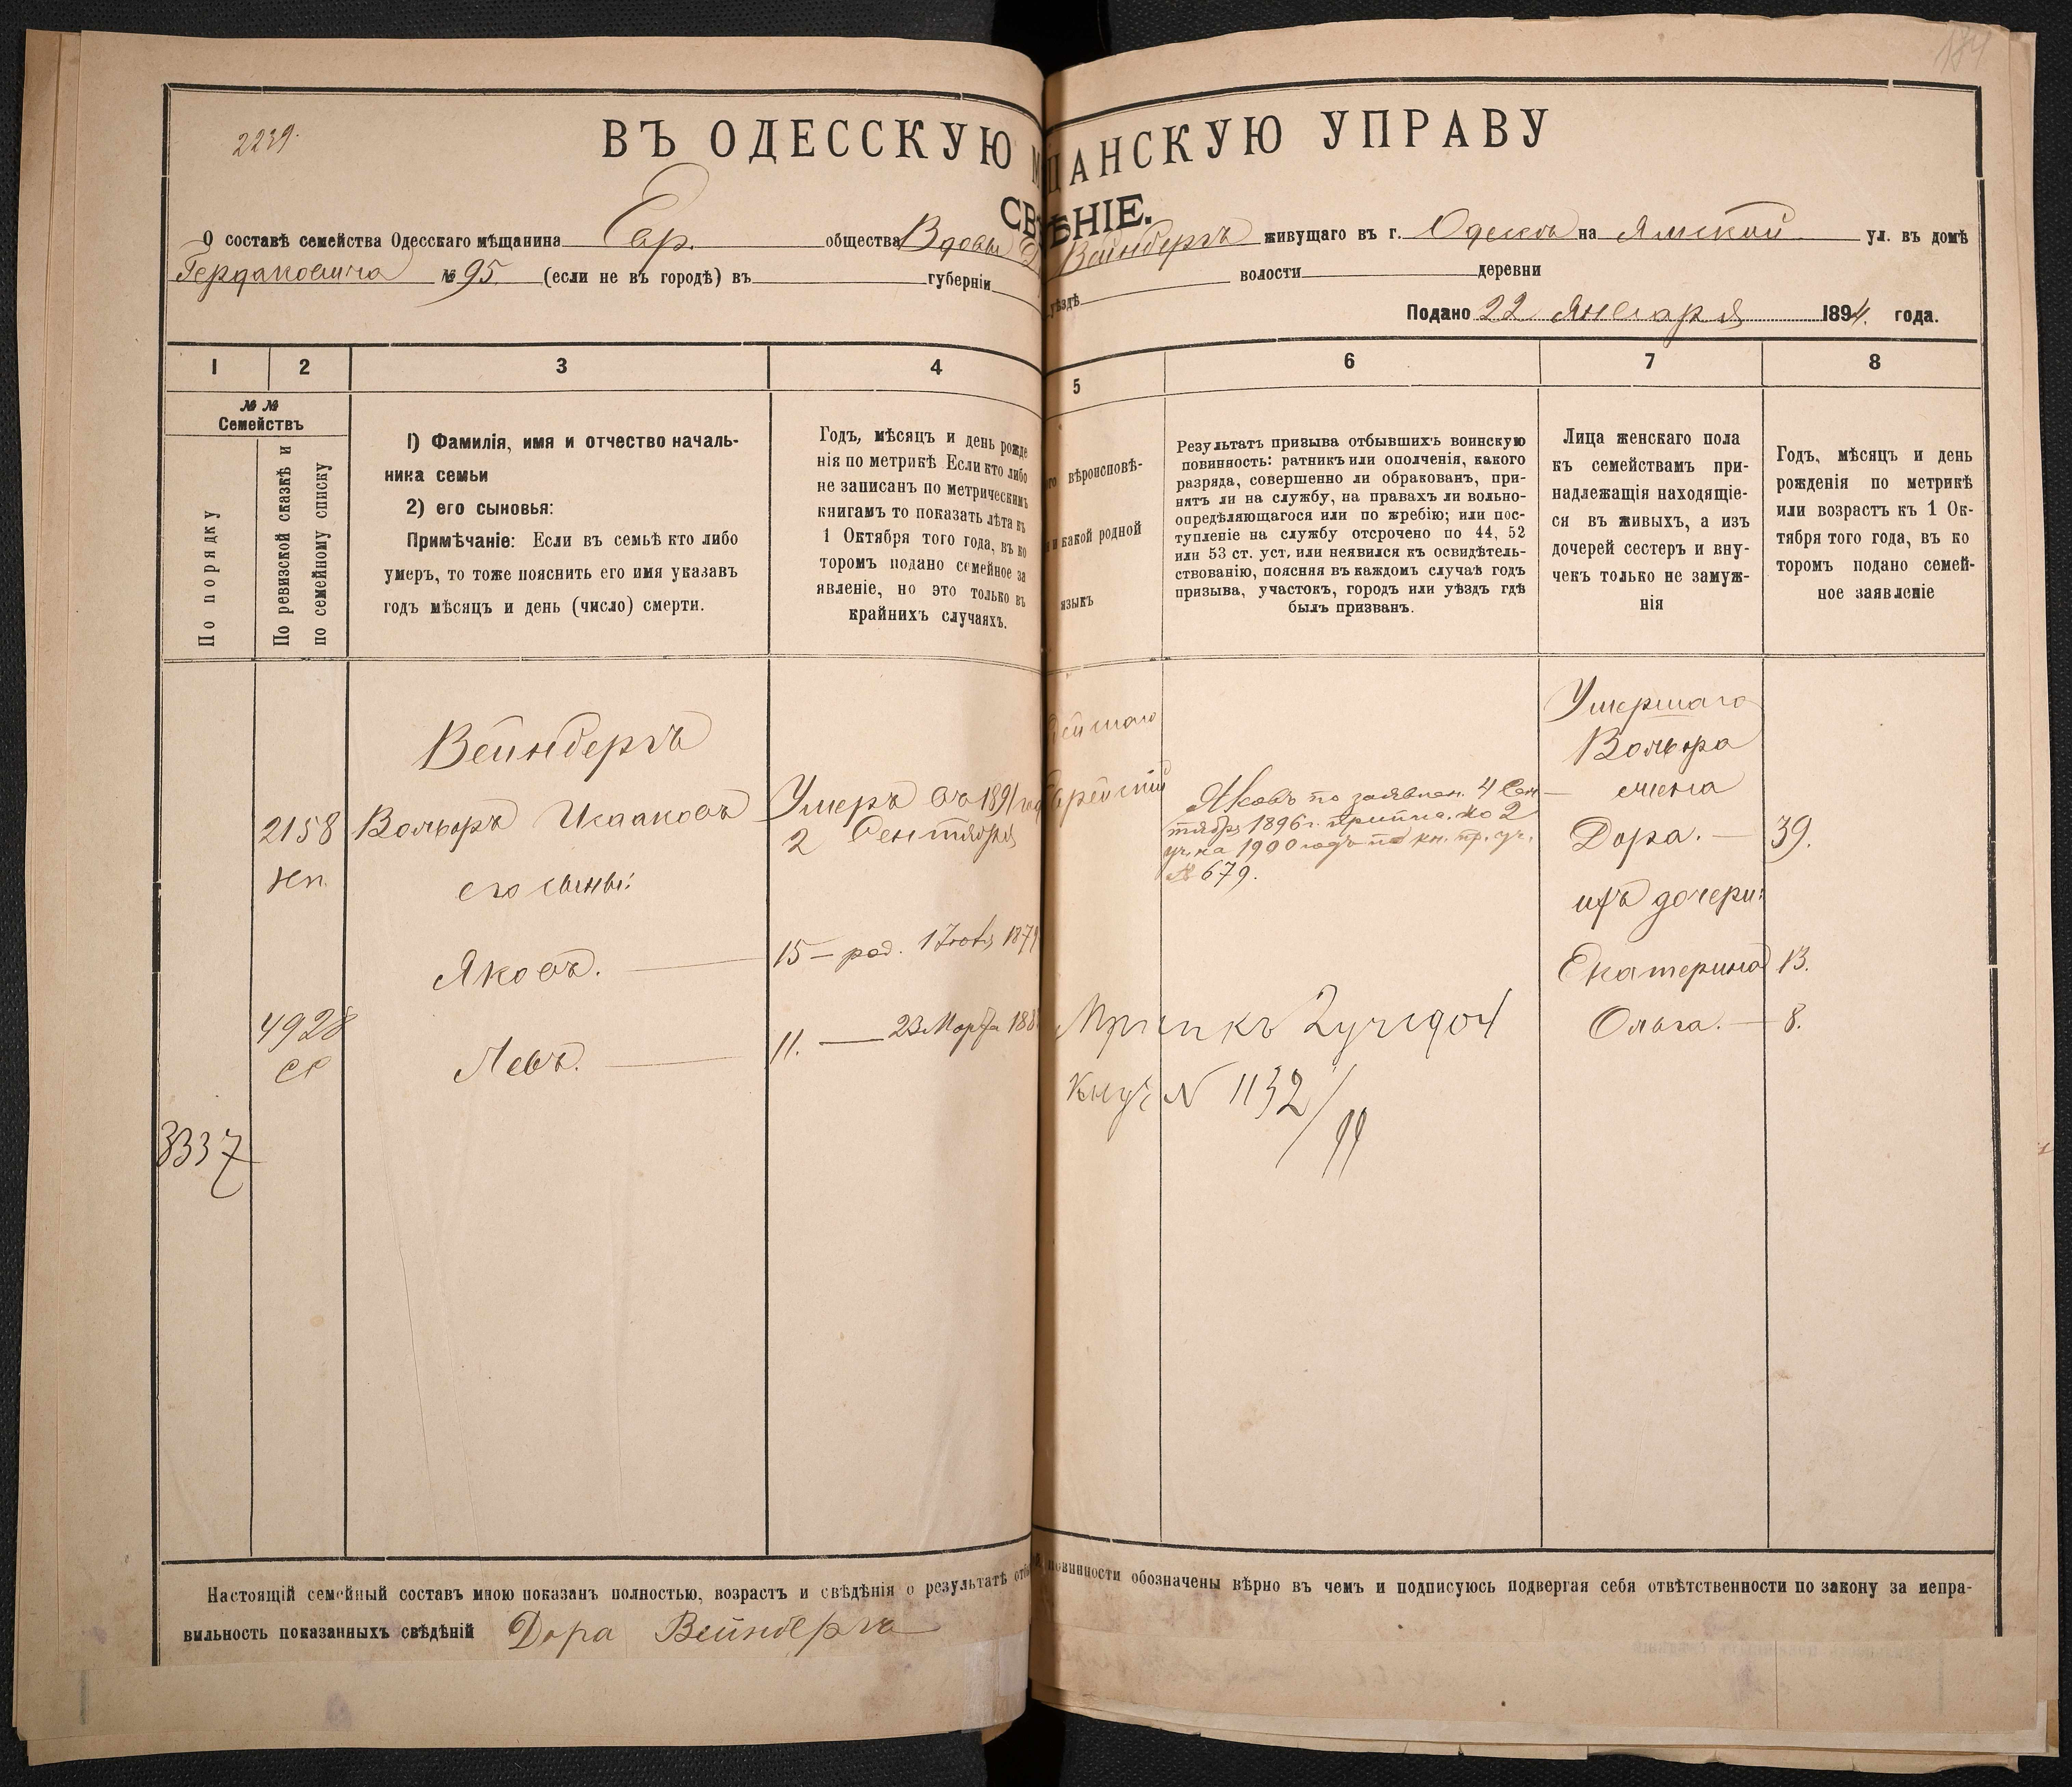 184
2239.
ВЪ ОДЕССКУЮ М ЩАНСКУЮ УПРАВУ
СВ ѢНІЕ.
О составѣ семейства Одесскаго мѣщанина Евр. общества Вдовы Д Вейнбергъ живущаго въ г. Одессѣ на Ямской ул. въ домѣ
№ 95. (если не въ городѣ) въ губерніи уѣздѣ волости деревни
Подано 22 Января 1894. года.
1 2 3 4 5 6 7 8
№ №
Семействъ
По порядку
По ревизской сказкѣ и
по семейному списку
1) Фамилія, имя и отчество началь-
ника семьи
2) его сыновья:
Примѣчаніе: Если въ семьѣ кто либо
умеръ, то тоже пояснить его имя указавъ
годъ мѣсяцъ и день (число) смерти.
Годъ, мѣсяцъ и день рожде
нія по метрикѣ Если кто либо
не записанъ по метрическимъ
книгамъ то показать лѣта къ
1 Октября того года, въ ко
торомъ подано семейное за
явленіе, но это только въ
крайнихъ случаяхъ.
го вѣроисповѣ-
и какой родной
языкъ
Результатъ призыва отбывшихъ воинскую
повинность: ратникъ или ополченія, какого
разряда, совершенно ли обракованъ, при-
нятъ ли на службу, на правахъ ли вольно-
опредѣляющагося или по жребію; или пос-
тупленіе на службу отсрочено по 44, 52
или 53 ст. уст, или неявился къ освидѣтель-
ствованію, поясняя въ каждомъ случаѣ годъ
призыва, участокъ, городъ или уѣздъ гдѣ
былъ призванъ.
Лица женскаго пола
къ семействамъ при-
надлежащія находящіе-
ся въ живыхъ, а изъ
дочерей сестеръ и вну-
чекъ только не замуж-
нія
Годъ, мѣсяцъ и день
рожденія по метрикѣ
или возрастъ къ 1 Ок-
тября того года, въ ко
торомъ подано семей-
ное заявленіе
Вейнбергъ
2158 Вольфъ Исааковъ
его сыны:
Яковъ.
4928
Левъ.
3337
Умеръ въ 1891 год
2 Сентября
15 – род. 1 1879
11. — 23 Марта 188
Яковъ по заявлен. 4 Сен
тября 1896 г. припис. ко 2
уч. на 1900 годъ по кн. пр. уч.
№ 679.
къ 2 уч
N 1132/99
Умершаго
Вольфа
жена
Дора. — 39.
ихъ дочери:
Екатерина 13.
Ольга. — 8.
Настоящій семейный составъ мною показанъ полностью, возрастъ и свѣдѣнія о результатѣ отб повинности обозначены вѣрно въ чемъ и подписуюсь подвергая себя отвѣтственности по закону за непра-
вильность показанныхъ свѣдѣній Дора Вейнбергъ